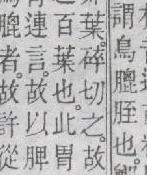 謂鳥膍胵也
葉。碎切之。故
百葉也。此胃
連言。故以脾
者。故許從